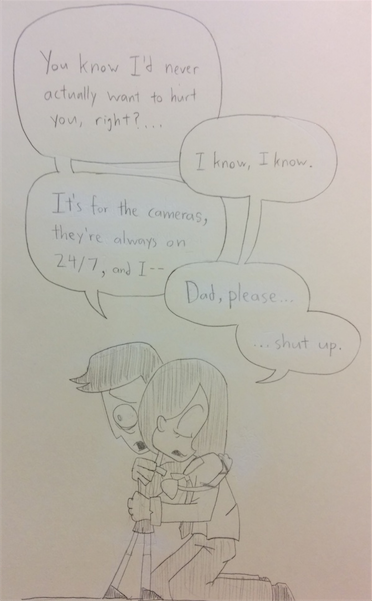 You know I'd never
actually want to hurt
you, right?...
I know, I know.
It's for the cameras,
they're always on
24/7, and I--
Dad, please...
...shut up.